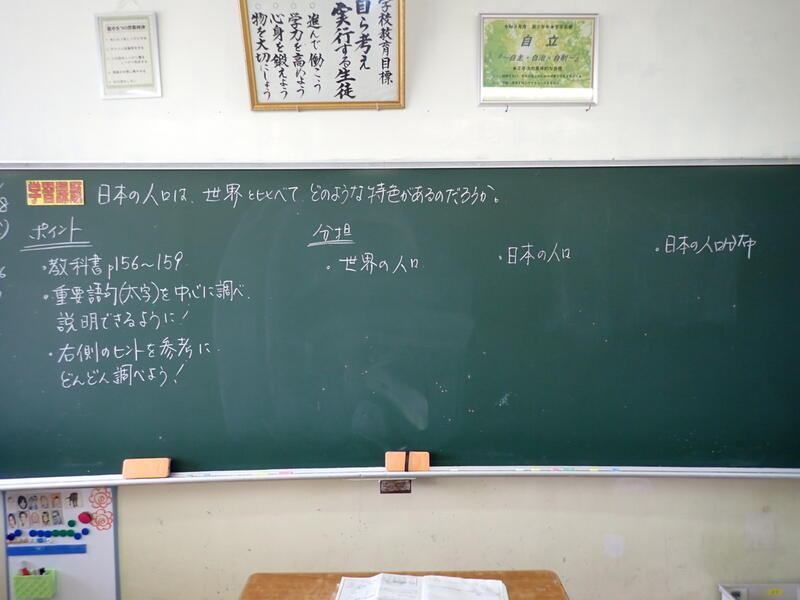 学校教育目標
自ら考え
実行する生徒
○進んで働こう
○学力を高めよう
○心身を鍛えよう
○物を大切にしよう
自立
～自主・自治・自制～
学習課題
日本の人口は、世界と比べて、どのような特色があるのだろうか。
ポイント
・教科書p156〜159
・重要語句(太字)を中心に調べ、
説明できるように!
・右側のヒントを参考に
どんどん調べよう!
分担
・世界の人口
・日本の人口
・日本の人口分布